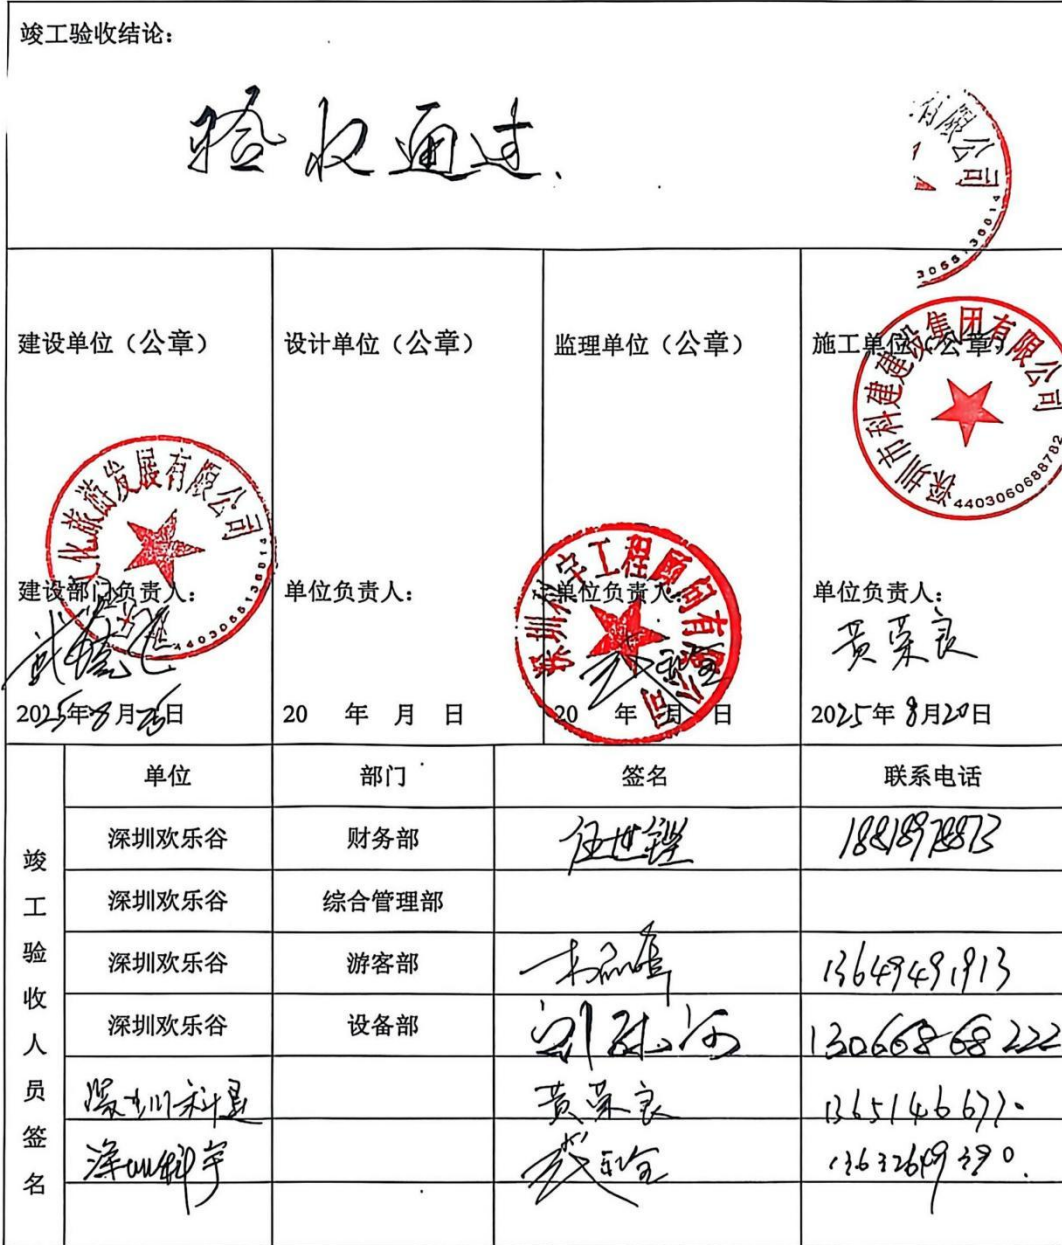 竣工验收结论：
验收通过.
有限公司
3055136014
建设单位（公章）
设计单位（公章）
监理单位（公章）
施工单位（公章）
文化旅游发展有限公司
4403055136014
深圳科宇工程顾问有限公司
深圳市科建建设集团有限公司
4403060688782
建设部门负责人：
单位负责人：
单位负责人：
单位负责人：
黄荣良
2025年8月26日
20 年 月 日
20 年 月 日
2025年8月20日
竣工验收人员签名
单位 部门 签名 联系电话
深圳欢乐谷 财务部 任世铿 18818978873
深圳欢乐谷 综合管理部
深圳欢乐谷 游客部 13649491913
深圳欢乐谷 设备部 13066868222
深圳科建 黄荣良 13651466771
深圳科宇 13632649390.